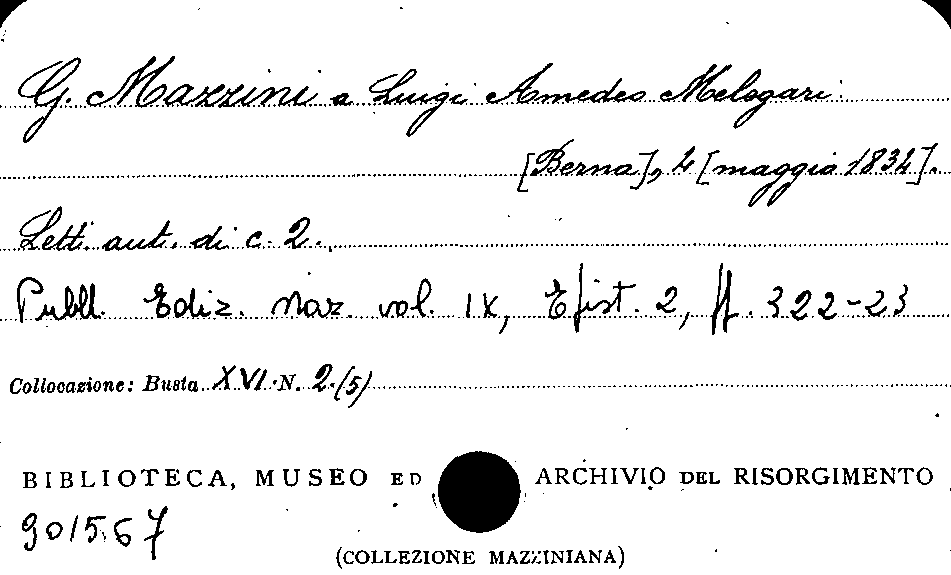 G. Mazzini a Luigi Amedeo Melegari.
[Berna], 4 [maggio 1834].
Lett. aut. di c. 2.
Pubbl. Ediz. Naz. vol. IX, Epist. 2, pp. 322-23
Collocazione: Busta XVI N. 2.(5)
BIBLIOTECA, MUSEO ED ARCHIVIO DEL RISORGIMENTO
901567
(COLLEZIONE MAZZINIANA)